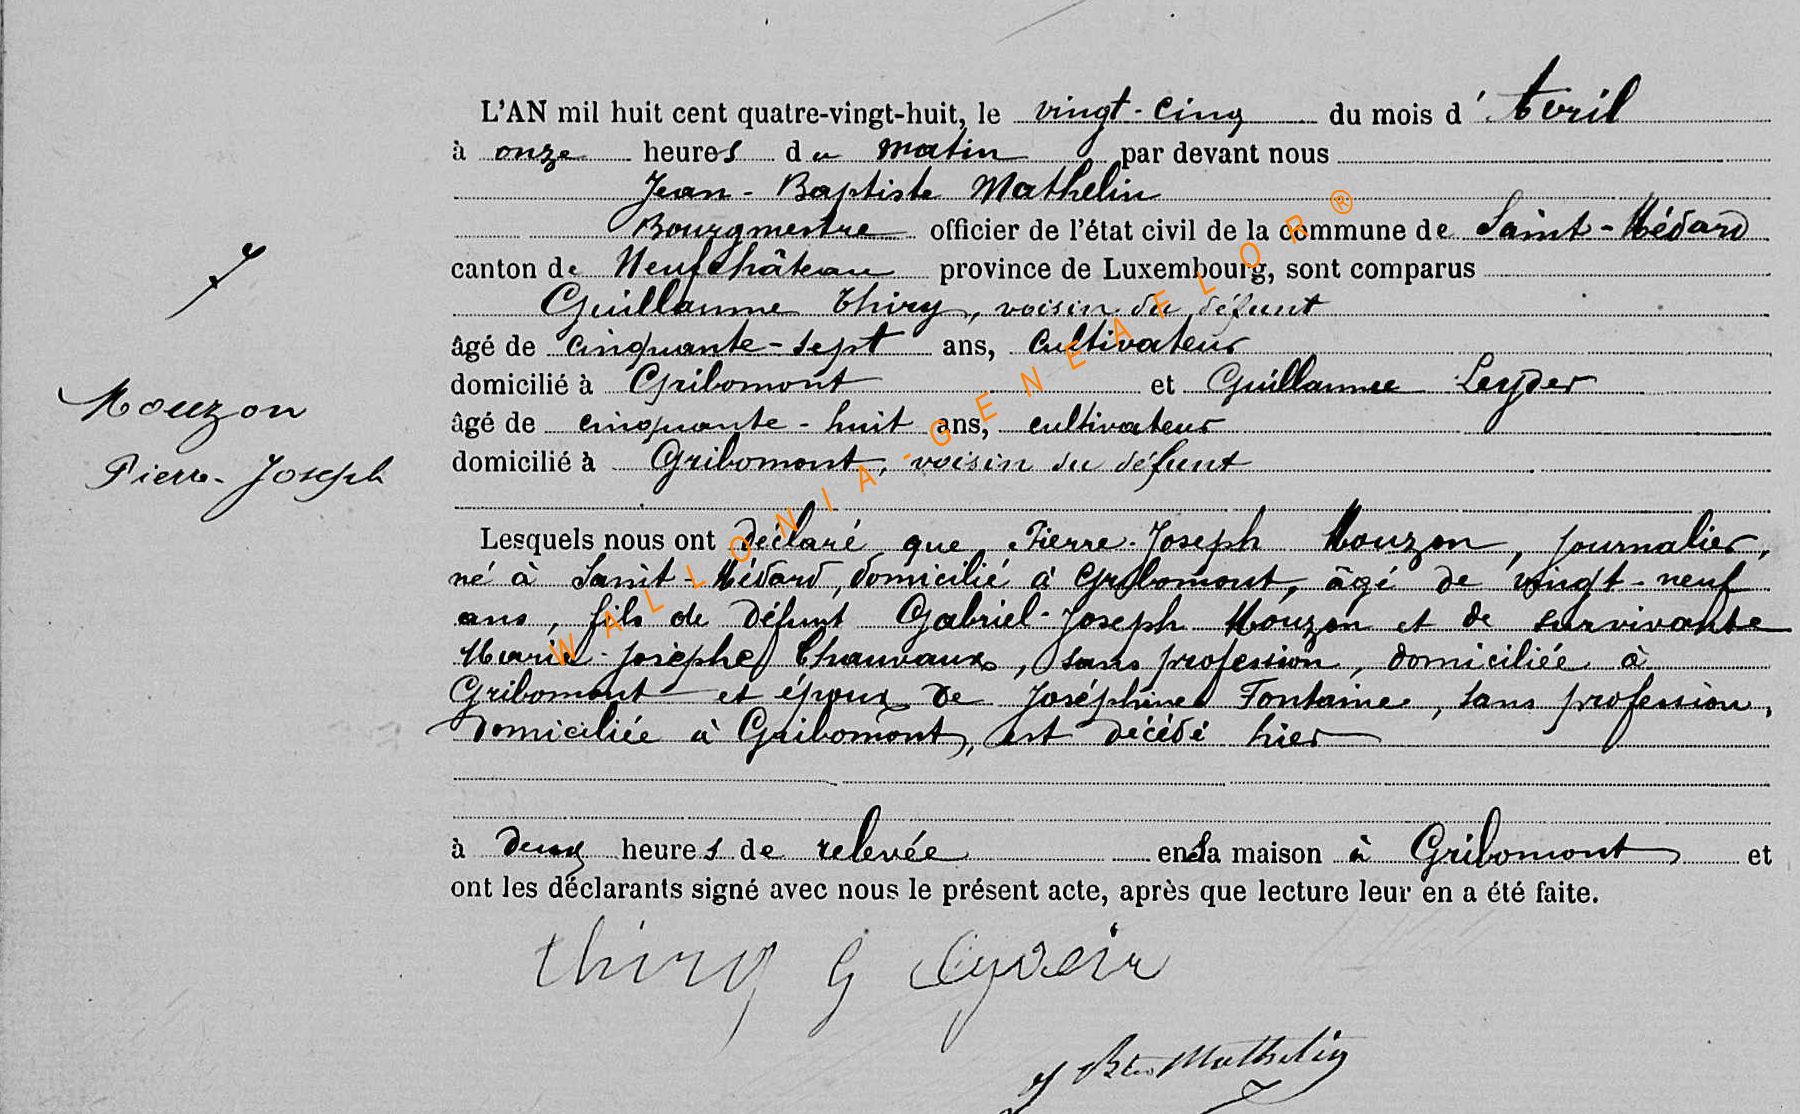 L'AN mil huit cent quatre-vingt-huit, le vingt-cinq du mois d'Avril
à onze heures du matin par devant nous
Jean-Baptiste Mathelin
Bourgmestre officier de l'état civil de la commune de Saint-Médard
canton de Neufchâteau province de Luxembourg, sont comparus
Guillaume Thiry, voisin du défunt
âgé de cinquante-sept ans, cultivateur
domicilié à Gribomont et Guillaume Leyder
âgé de cinquante-huit ans, cultivateur
domicilié à Gribomont, voisin du défunt
Mouzon
Pierre-Joseph
Lesquels nous ont déclaré que Pierre-Joseph Mouzon, journalier,
né à Saint-Médard, domicilié à Gribomont, âgé de vingt-neuf
ans, fils de défunt Gabriel-Joseph Mouzon et de survivante
Marie-Josèphe Chauvaux, sans profession, domiciliée à
Gribomont et époux de Joséphine Fontaine, sans profession,
domiciliée à Gribomont, est décédé hier
à deux heures de relevée en sa maison à Gribomont et
ont les déclarants signé avec nous le présent acte, après que lecture leur en a été faite.
thiry G
J Bte Mathelin
WALLONIA-GENEAFLOR®